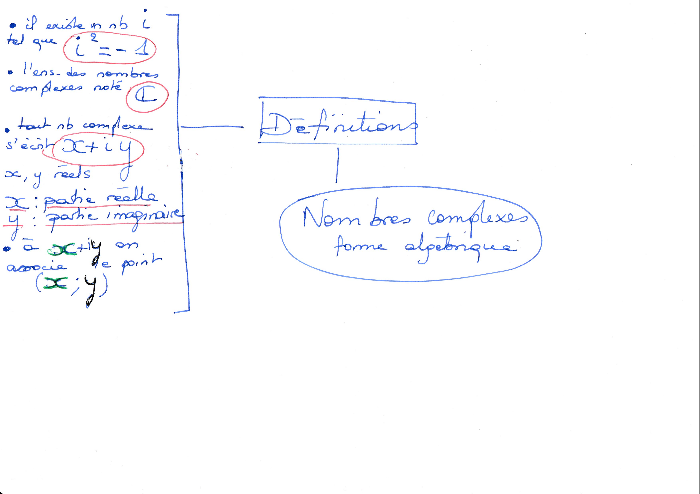 • il existe un nb i
tel que i² = -1
• l'ens. des nombres
complexes noté ℂ
• tout nb complexe
s'écrit x + i y
x, y réels
x : partie réelle
y : partie imaginaire
• à x + iy on
associe le point
(x ; y)
Définitions
Nombres complexes
forme algébrique